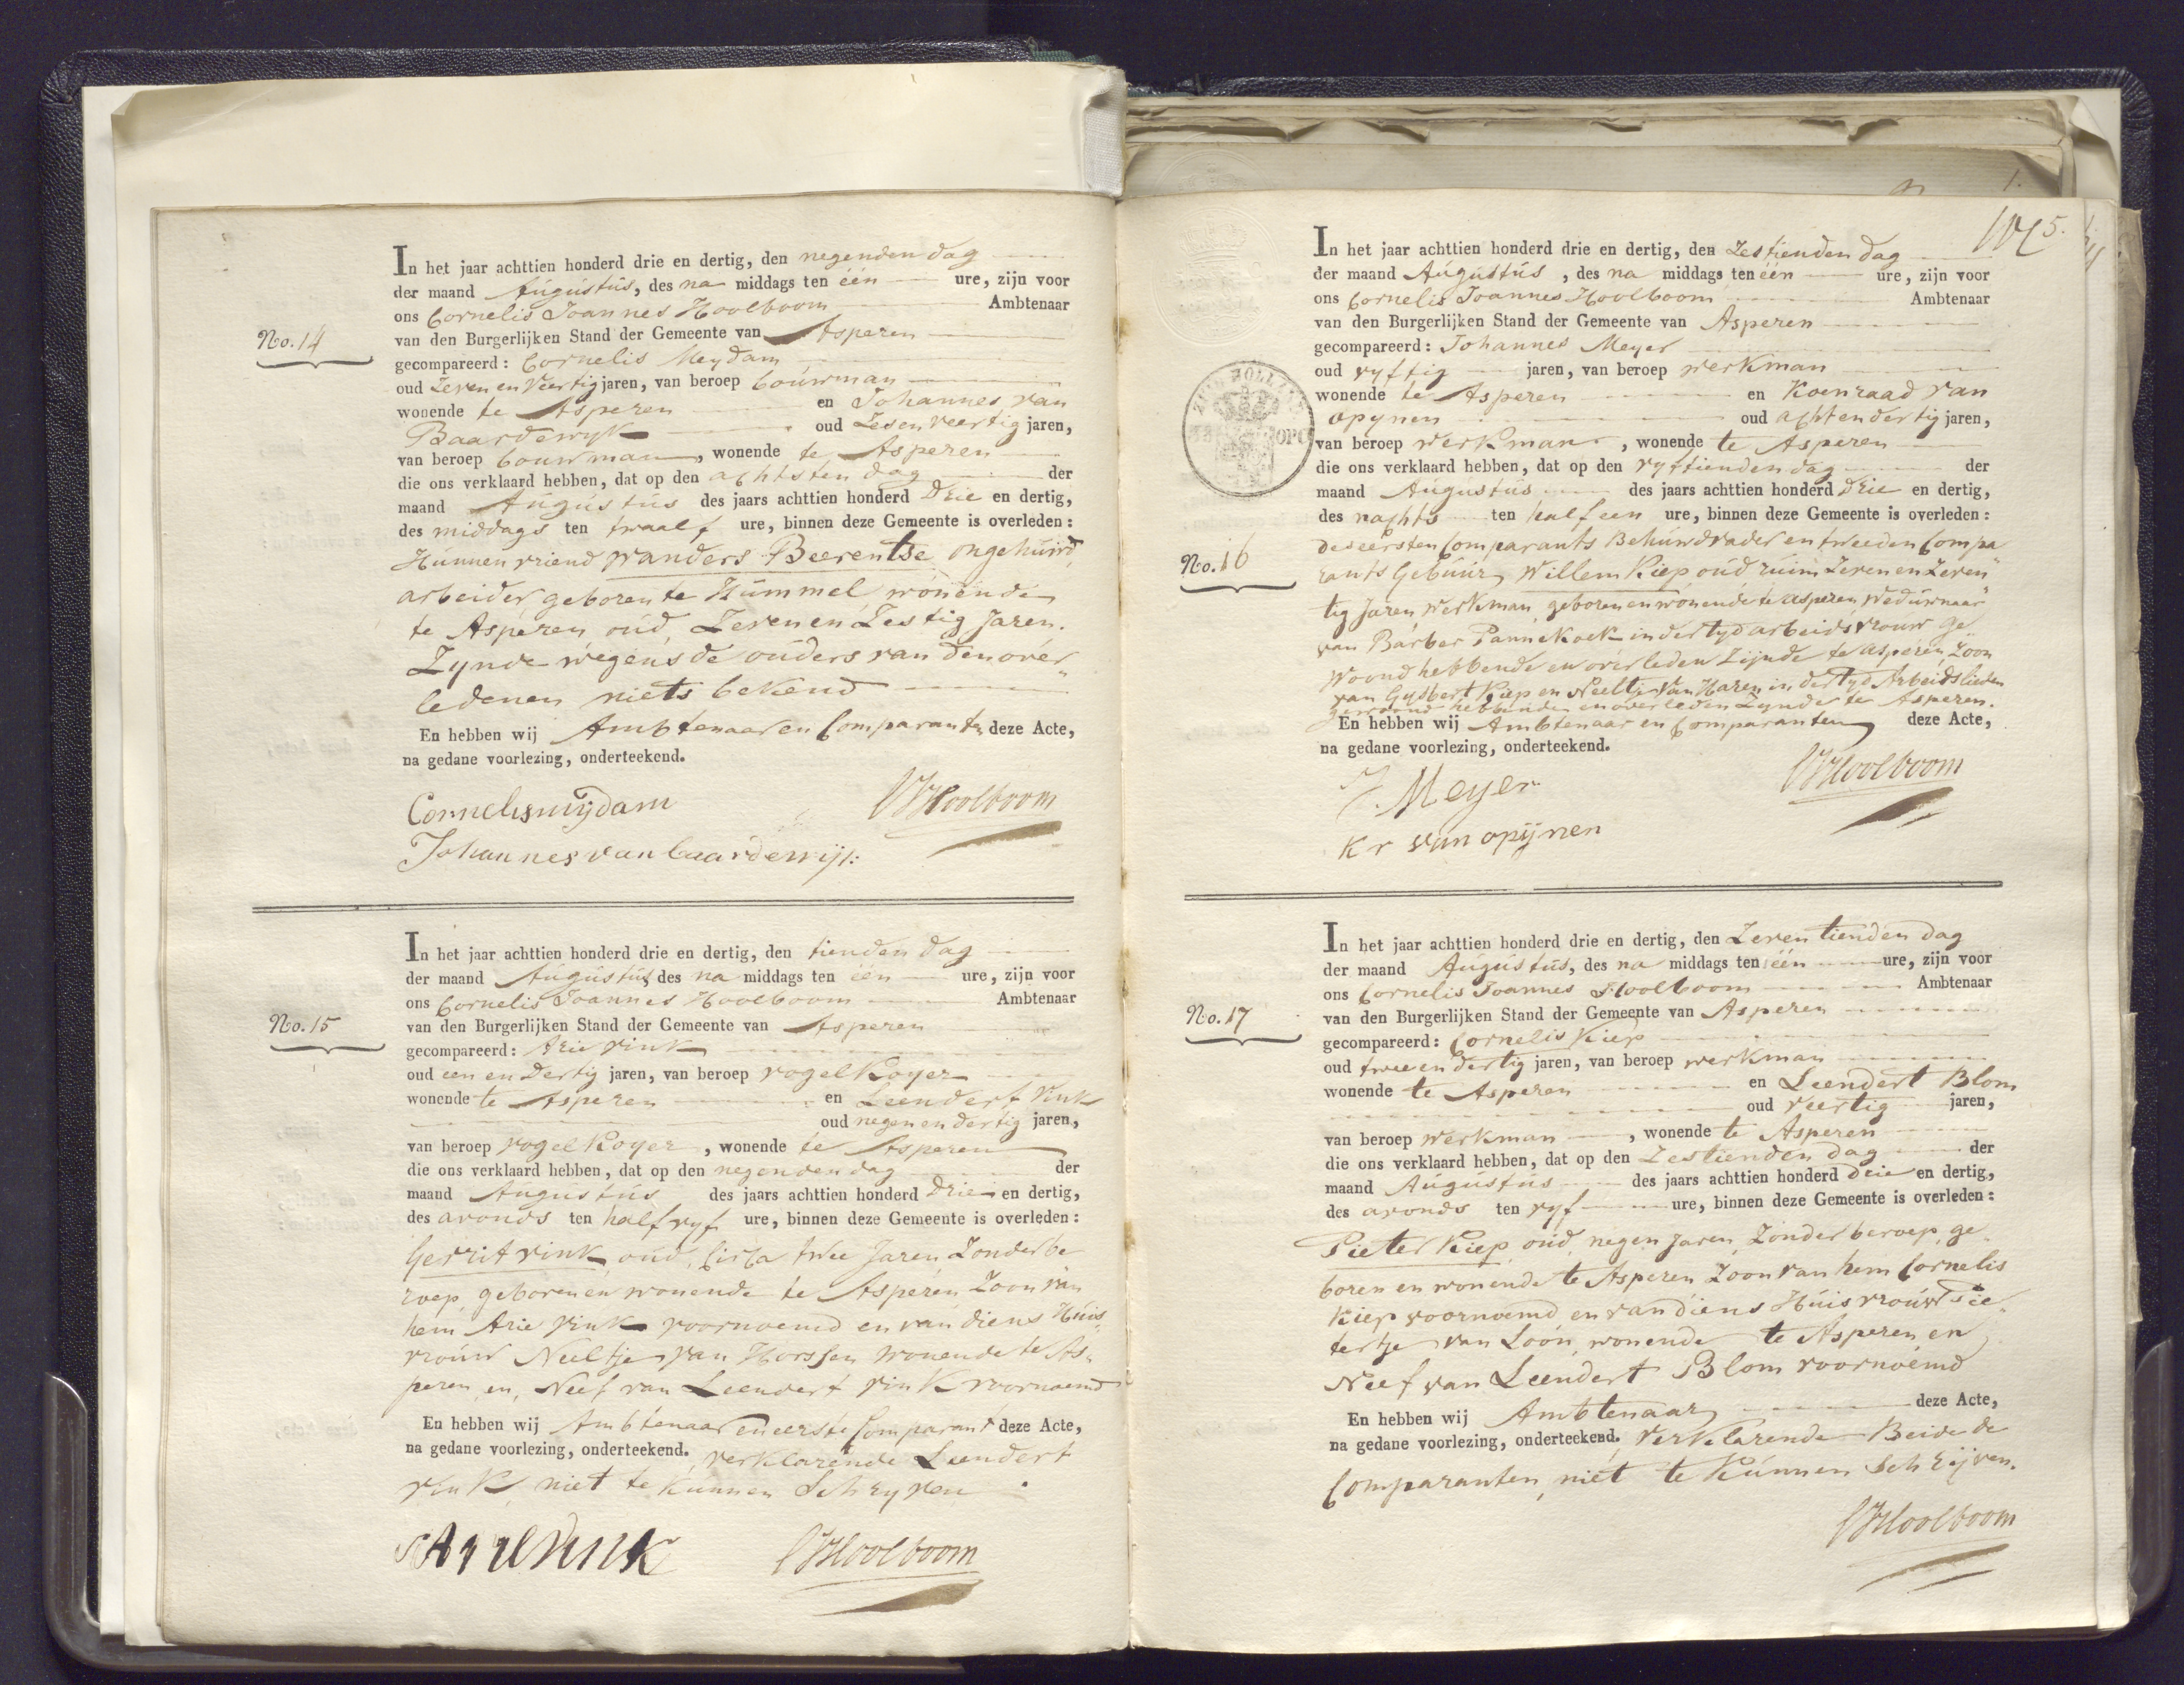 No. 14
In het jaar achttien honderd drie en dertig, den negenden dag
der maand Augustus, des na middags ten één ure, zijn voor
ons Cornelis Joannes Hoolboom Ambtenaar
van den Burgerlijken Stand der Gemeente van Asperen
gecompareerd: Cornelis Meydam
oud Zeven en Veertig jaren, van beroep bouwman
wonende te Asperen en Johannes van
Baardewyk oud Zes en veertig jaren,
van beroep bouwman, wonende te Asperen
die ons verklaard hebben, dat op den achtsten dag der
maand Augustus des jaars achttien honderd Drie en dertig,
des middags ten twaalf ure, binnen deze Gemeente is overleden:
Hunnen vriend Wanders Beerentse ongehuwd,
arbeider geboren te Hummel wonende
te Asperen oud Zeven en Zestig Jaren.
Zynde wegens de ouders van den over"
ledenen niets bekend
En hebben wij Ambtenaar en Comparanten deze Acte,
na gedane voorlezing, onderteekend.
Cornelis mijdam
CJHoolboom
Johannes van baardewijk
No. 15
In het jaar achttien honderd drie en dertig, den tienden dag
der maand Augustus des na middags ten één ure, zijn voor
ons Cornelis Joannes Hoolboom Ambtenaar
van den Burgerlijken Stand der Gemeente van Asperen
gecompareerd: Arie Vink
oud een en Dertig jaren, van beroep vogel Koyer
wonende te Asperen en Leendert Vink
oud negen en dertig jaren,
van beroep vogel Koyer, wonende te Asperen
die ons verklaard hebben, dat op den negenden dag der
maand Augustus des jaars achttien honderd Drie en dertig,
des avonds ten half vyf ure, binnen deze Gemeente is overleden:
Gerrit Vink oud, Circa twee Jaren Zonder be
roep, geboren en wonende te Asperen Zoon van
hem Arie Vink voornoemd en van diens Huis„
vrouw Neeltje van Horssen wonende te As„
peren en, Neef van Leendert Vink voornoemd
En hebben wij Ambtenaar en eerste Comparant deze Acte,
na gedane voorlezing, onderteekend. verklarende Leendert
Vink niet te kunnen Schryven
Arie Vink
CJHoolboom
5.
In het jaar achttien honderd drie en dertig, den Zestienden dag
der maand Augustus, des na middags ten één ure, zijn voor
ons Cornelis Joannes Hoolboom Ambtenaar
van den Burgerlijken Stand der Gemeente van Asperen
gecompareerd: Johannes Meyer
oud vyftig jaren, van beroep werkman
wonende te Asperen en Koenraad van
opynen oud acht en dertig jaren,
van beroep werkman, wonende te Asperen
die ons verklaard hebben, dat op den vyftienden dag der
maand Augustus des jaars achttien honderd Drie en dertig,
des nachts ten half een ure, binnen deze Gemeente is overleden:
No. 16
des eersten Comparants Behuwdvader en tweeden Compa
rants Gebuur, Willem Kiep, oud ruim Zeven en Zeven"
tig Jaren, werkman, geboren en wonende te asperen, Weduwnaar
van Barber Pannekoek in der tyd arbeidsvrouw ge
woond hebbende en overleden Zijnde te asperen, Zoon
van Gysbert Kiep en Neeltje van Haren in der tyd Arbeidslieden
gewoond hebbende en overleden Zynde te Asperen.
En hebben wij Ambtenaar en Comparanten deze Acte,
na gedane voorlezing, onderteekend.
J. Meyer
CJHoolboom
Kr van opijnen
No. 17
In het jaar achttien honderd drie en dertig, den Zeventienden dag
der maand Augustus, des na middags ten één ure, zijn voor
ons Cornelis Joannes Hoolboom Ambtenaar
van den Burgerlijken Stand der Gemeente van Asperen
gecompareerd: Cornelis Kiep
oud twee en dertig jaren, van beroep werkman
wonende te Asperen en Leendert Blom
oud veertig jaren,
van beroep werkman, wonende te Asperen
die ons verklaard hebben, dat op den Zestienden dag der
maand Augustus des jaars achttien honderd drie en dertig,
des avonds ten vyf ure, binnen deze Gemeente is overleden:
Pieter Kiep oud, negen Jaren, Zonder beroep, ge„
boren en wonende te Asperen Zoon van hem Cornelis
Kiep voornoemd en van diens Huisvrouw Pie„
tertje van Loon, wonende te Asperen en
Neef van Leendert Blom voornoemd
En hebben wij Ambtenaar deze Acte,
na gedane voorlezing, onderteekend. Verklarende Beide de
Comparanten, niet te kunnen Schrijven.
CJHoolboom